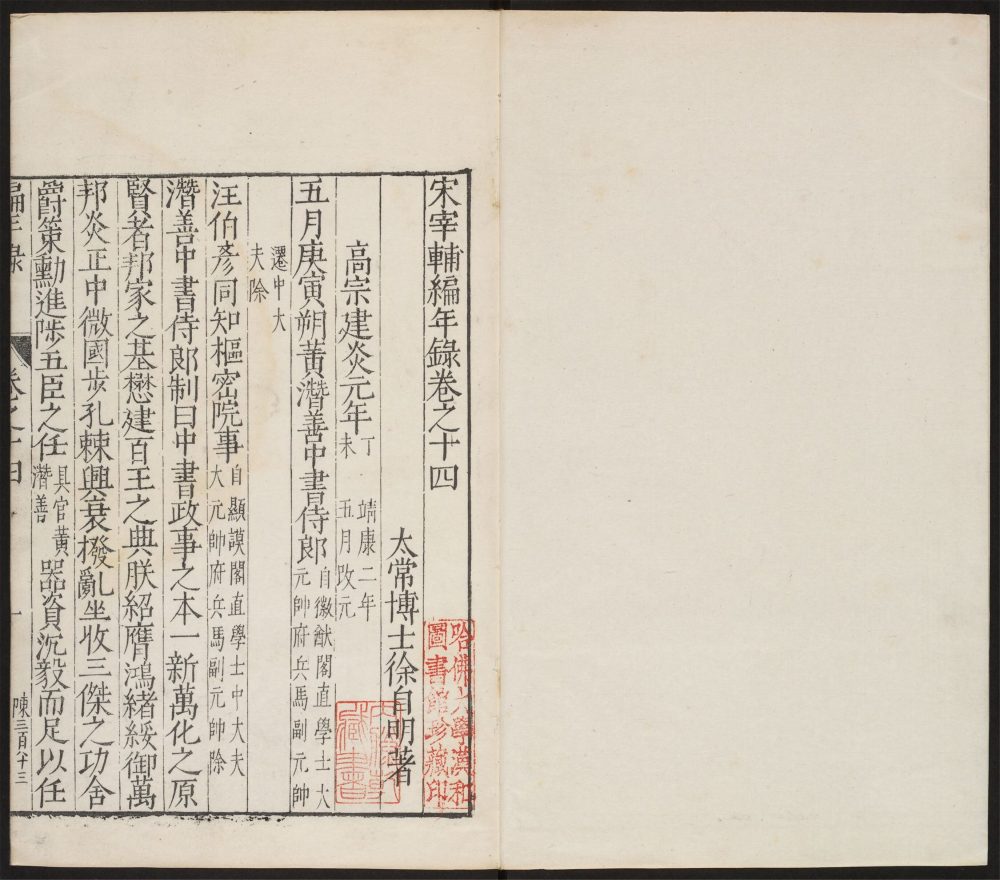 宋宰輔編年錄卷之十四
太常博士徐自明著
高宗建炎元年丁未 靖康二年五月改元
五月庚寅朔黃潛善中書侍郎自徽猷閣直學士大元帥府兵馬副元帥
遷中大夫除
汪伯彥同知樞密院事自顯謨閣直學士中大夫大元帥府兵馬副元帥除
潛善中書侍郎制曰中書政事之本一新萬化之原
賢者邦家之基懋建百王之典朕紹膺鴻緒綏御萬
邦炎正中微國步孔棘興衰撥亂坐收三傑之功舍
爵策勳進陟五臣之任具官黃潛善器資沉毅而足以任
編年錄 卷之十四 一 陳三百八十三
哈佛大學漢和圖書館珍藏印
藏書